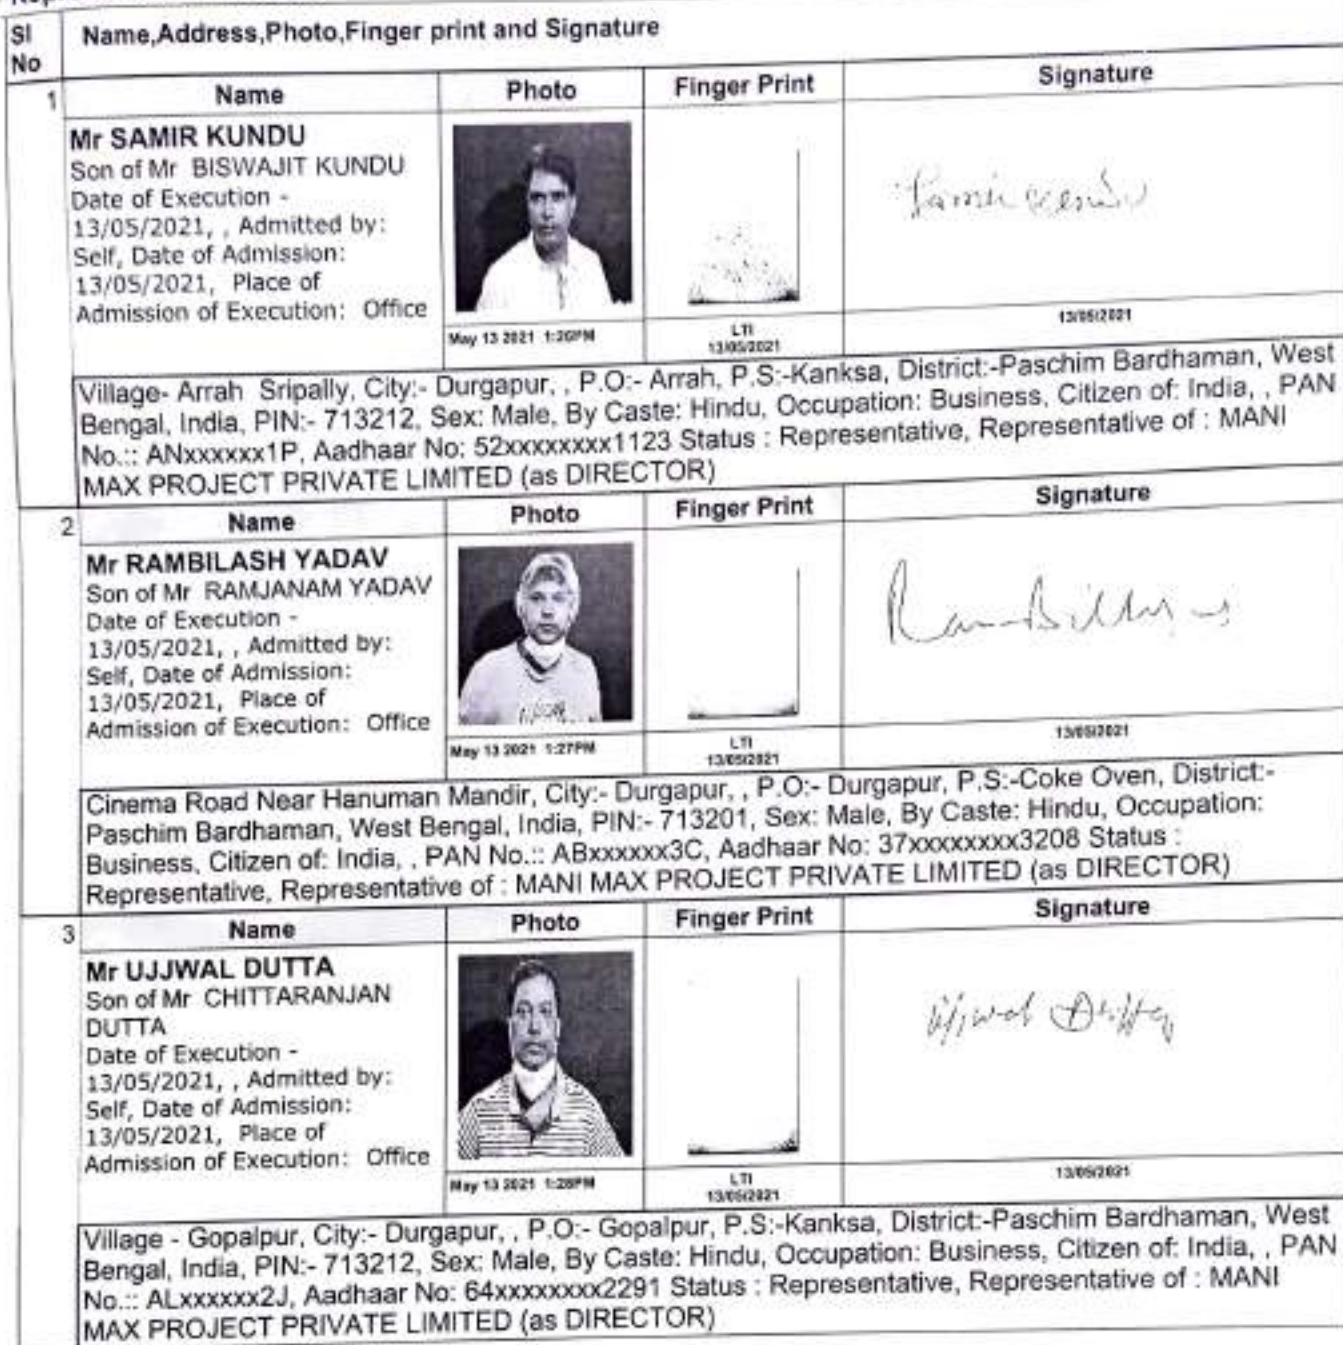 Sl
No
Name,Address,Photo,Finger print and Signature
1
Name
Photo
Finger Print
Signature
Mr SAMIR KUNDU
Son of Mr BISWAJIT KUNDU
Date of Execution -
13/05/2021, , Admitted by:
Self, Date of Admission:
13/05/2021, Place of
Admission of Execution: Office
May 13 2021 1:26PM
LTI
13/05/2021
Samir Kundu
13/05/2021
Village- Arrah Sripally, City:- Durgapur, , P.O:- Arrah, P.S:-Kanksa, District:-Paschim Bardhaman, West
Bengal, India, PIN:- 713212, Sex: Male, By Caste: Hindu, Occupation: Business, Citizen of: India, , PAN
No.:: ANxxxxxx1P, Aadhaar No: 52xxxxxxxx1123 Status : Representative, Representative of : MANI
MAX PROJECT PRIVATE LIMITED (as DIRECTOR)
2
Name
Photo
Finger Print
Signature
Mr RAMBILASH YADAV
Son of Mr RAMJANAM YADAV
Date of Execution -
13/05/2021, , Admitted by:
Self, Date of Admission:
13/05/2021, Place of
Admission of Execution: Office
May 13 2021 1:27PM
LTI
13/05/2021
13/05/2021
Cinema Road Near Hanuman Mandir, City:- Durgapur, , P.O:- Durgapur, P.S:-Coke Oven, District:-
Paschim Bardhaman, West Bengal, India, PIN:- 713201, Sex: Male, By Caste: Hindu, Occupation:
Business, Citizen of: India, , PAN No.:: ABxxxxxx3C, Aadhaar No: 37xxxxxxxx3208 Status :
Representative, Representative of : MANI MAX PROJECT PRIVATE LIMITED (as DIRECTOR)
3
Name
Photo
Finger Print
Signature
Mr UJJWAL DUTTA
Son of Mr CHITTARANJAN
DUTTA
Date of Execution -
13/05/2021, , Admitted by:
Self, Date of Admission:
13/05/2021, Place of
Admission of Execution: Office
May 13 2021 1:28PM
LTI
13/05/2021
Ujjwal Dutta
13/05/2021
Village - Gopalpur, City:- Durgapur, , P.O:- Gopalpur, P.S:-Kanksa, District:-Paschim Bardhaman, West
Bengal, India, PIN:- 713212, Sex: Male, By Caste: Hindu, Occupation: Business, Citizen of: India, , PAN
No.:: ALxxxxxx2J, Aadhaar No: 64xxxxxxxx2291 Status : Representative, Representative of : MANI
MAX PROJECT PRIVATE LIMITED (as DIRECTOR)